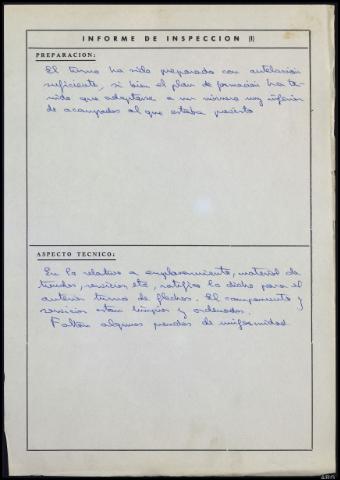 INFORME DE INSPECCION (I)
PREPARACION:
El turno ha sido preparado con antelación
suficiente, si bien el plan de formación ha te-
nido que adaptarse a un número muy inferior
de acampados al que estaba previsto
ASPECTO TECNICO:
En lo relativo a emplazamiento, material de
tiendas, servicios etc, ratifico lo dicho para el
anterior turno de flechas. El campamento y
servicios estan limpios y ordenados.
Faltan algunas prendas de uniformidad.